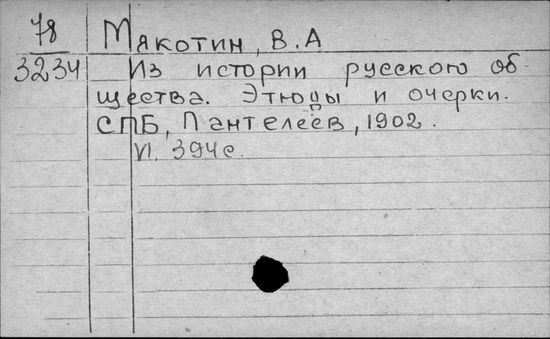 78 Мякотин, В. А
3234 Из истории русского об-
щества. Этюды и очерки.
СПБ, Пантелеев, 1902.
VI. 394с.